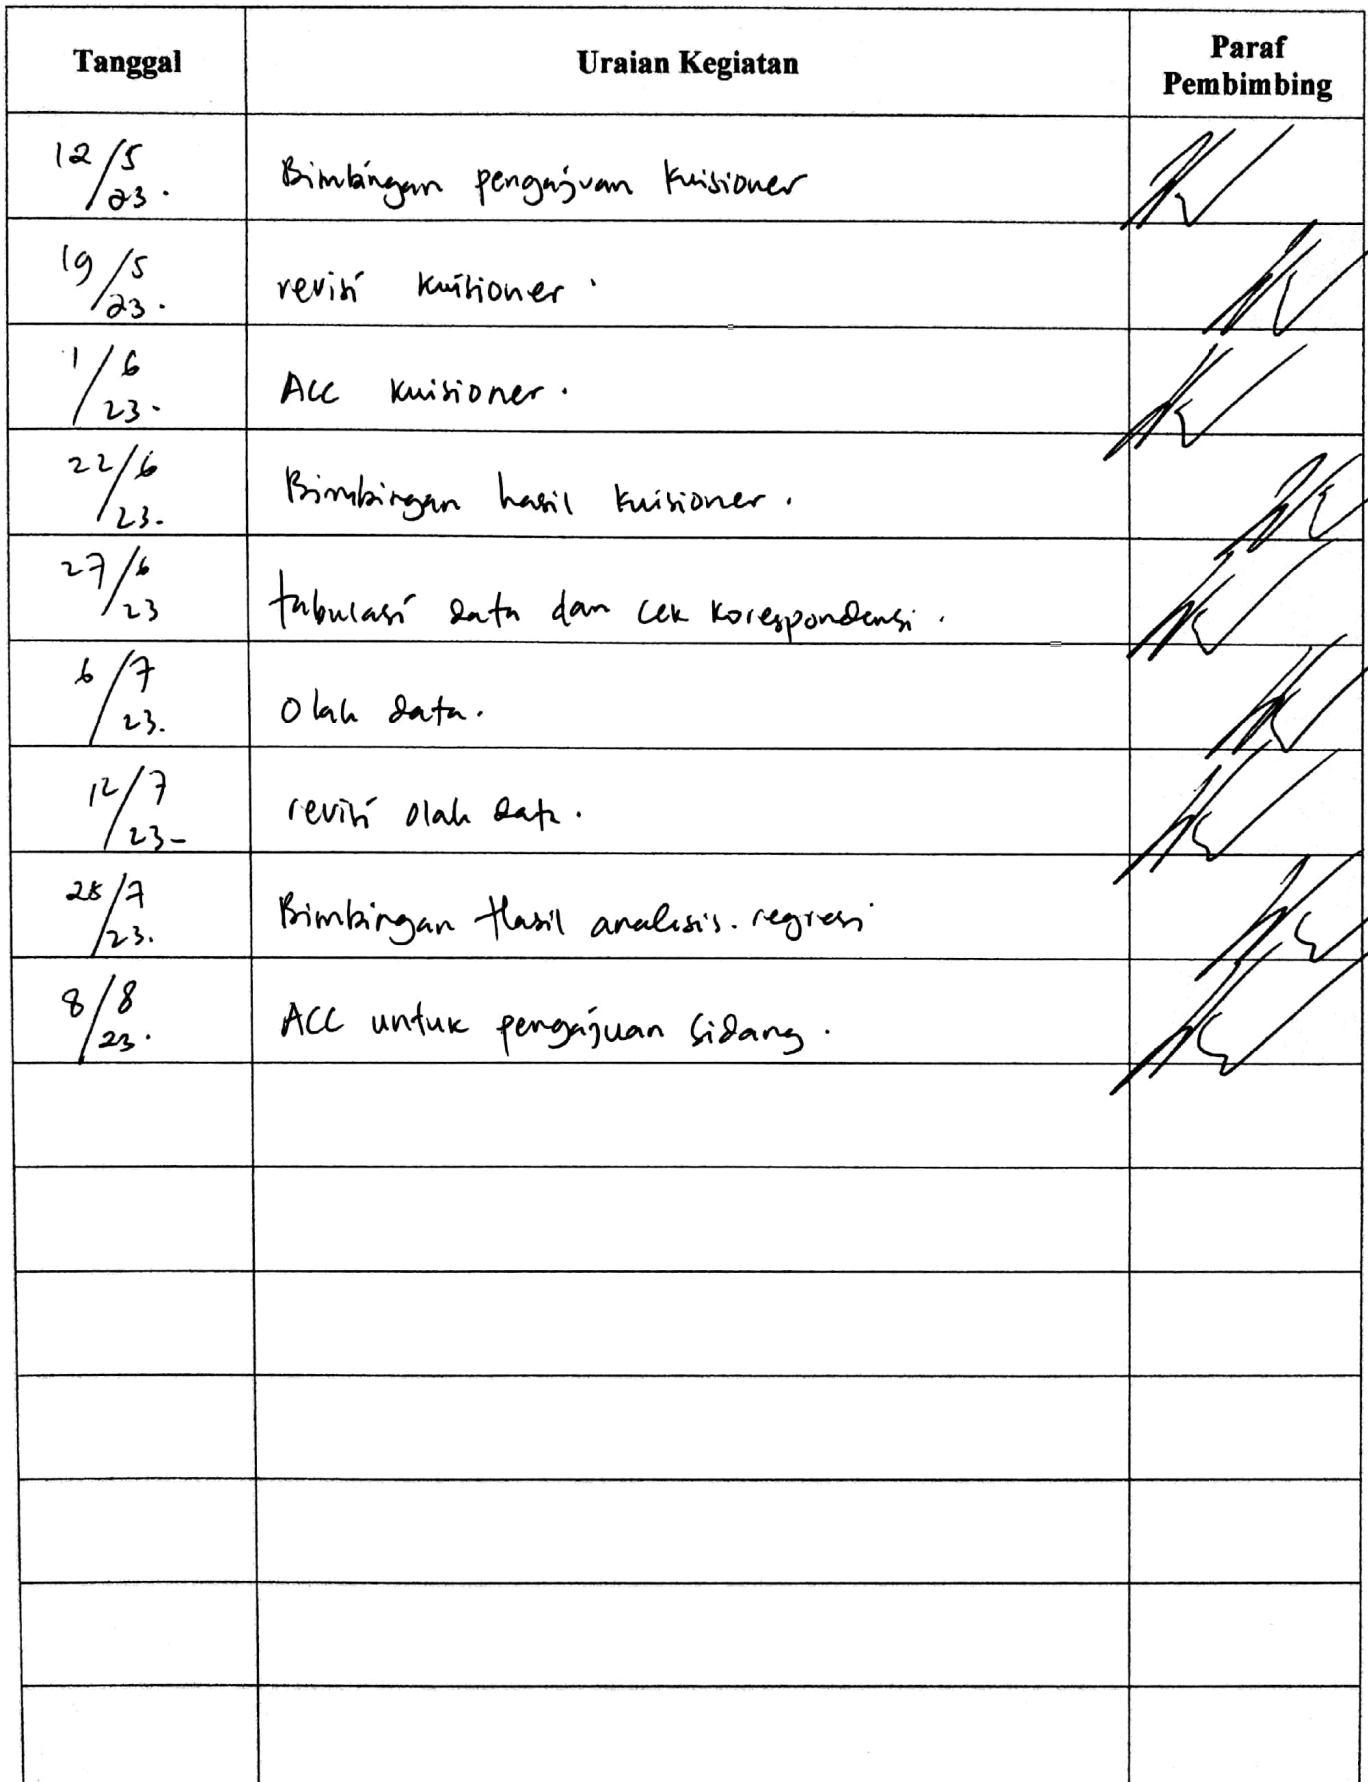 Tanggal Uraian Kegiatan Paraf
Pembimbing
12/5/23. Bimbingan pengajuan kuisioner
19/5/23. revisi kuisioner.
1/6/23. ACC kuisioner.
22/6/23. Bimbingan hasil kuisioner.
27/6/23 tabulasi data dan cek korespondensi.
6/7/23. Olah data.
12/7/23- revisi olah data.
/7/23. Bimbingan Hasil analisis. regresi
8/8/23. ACC untuk pengajuan sidang.